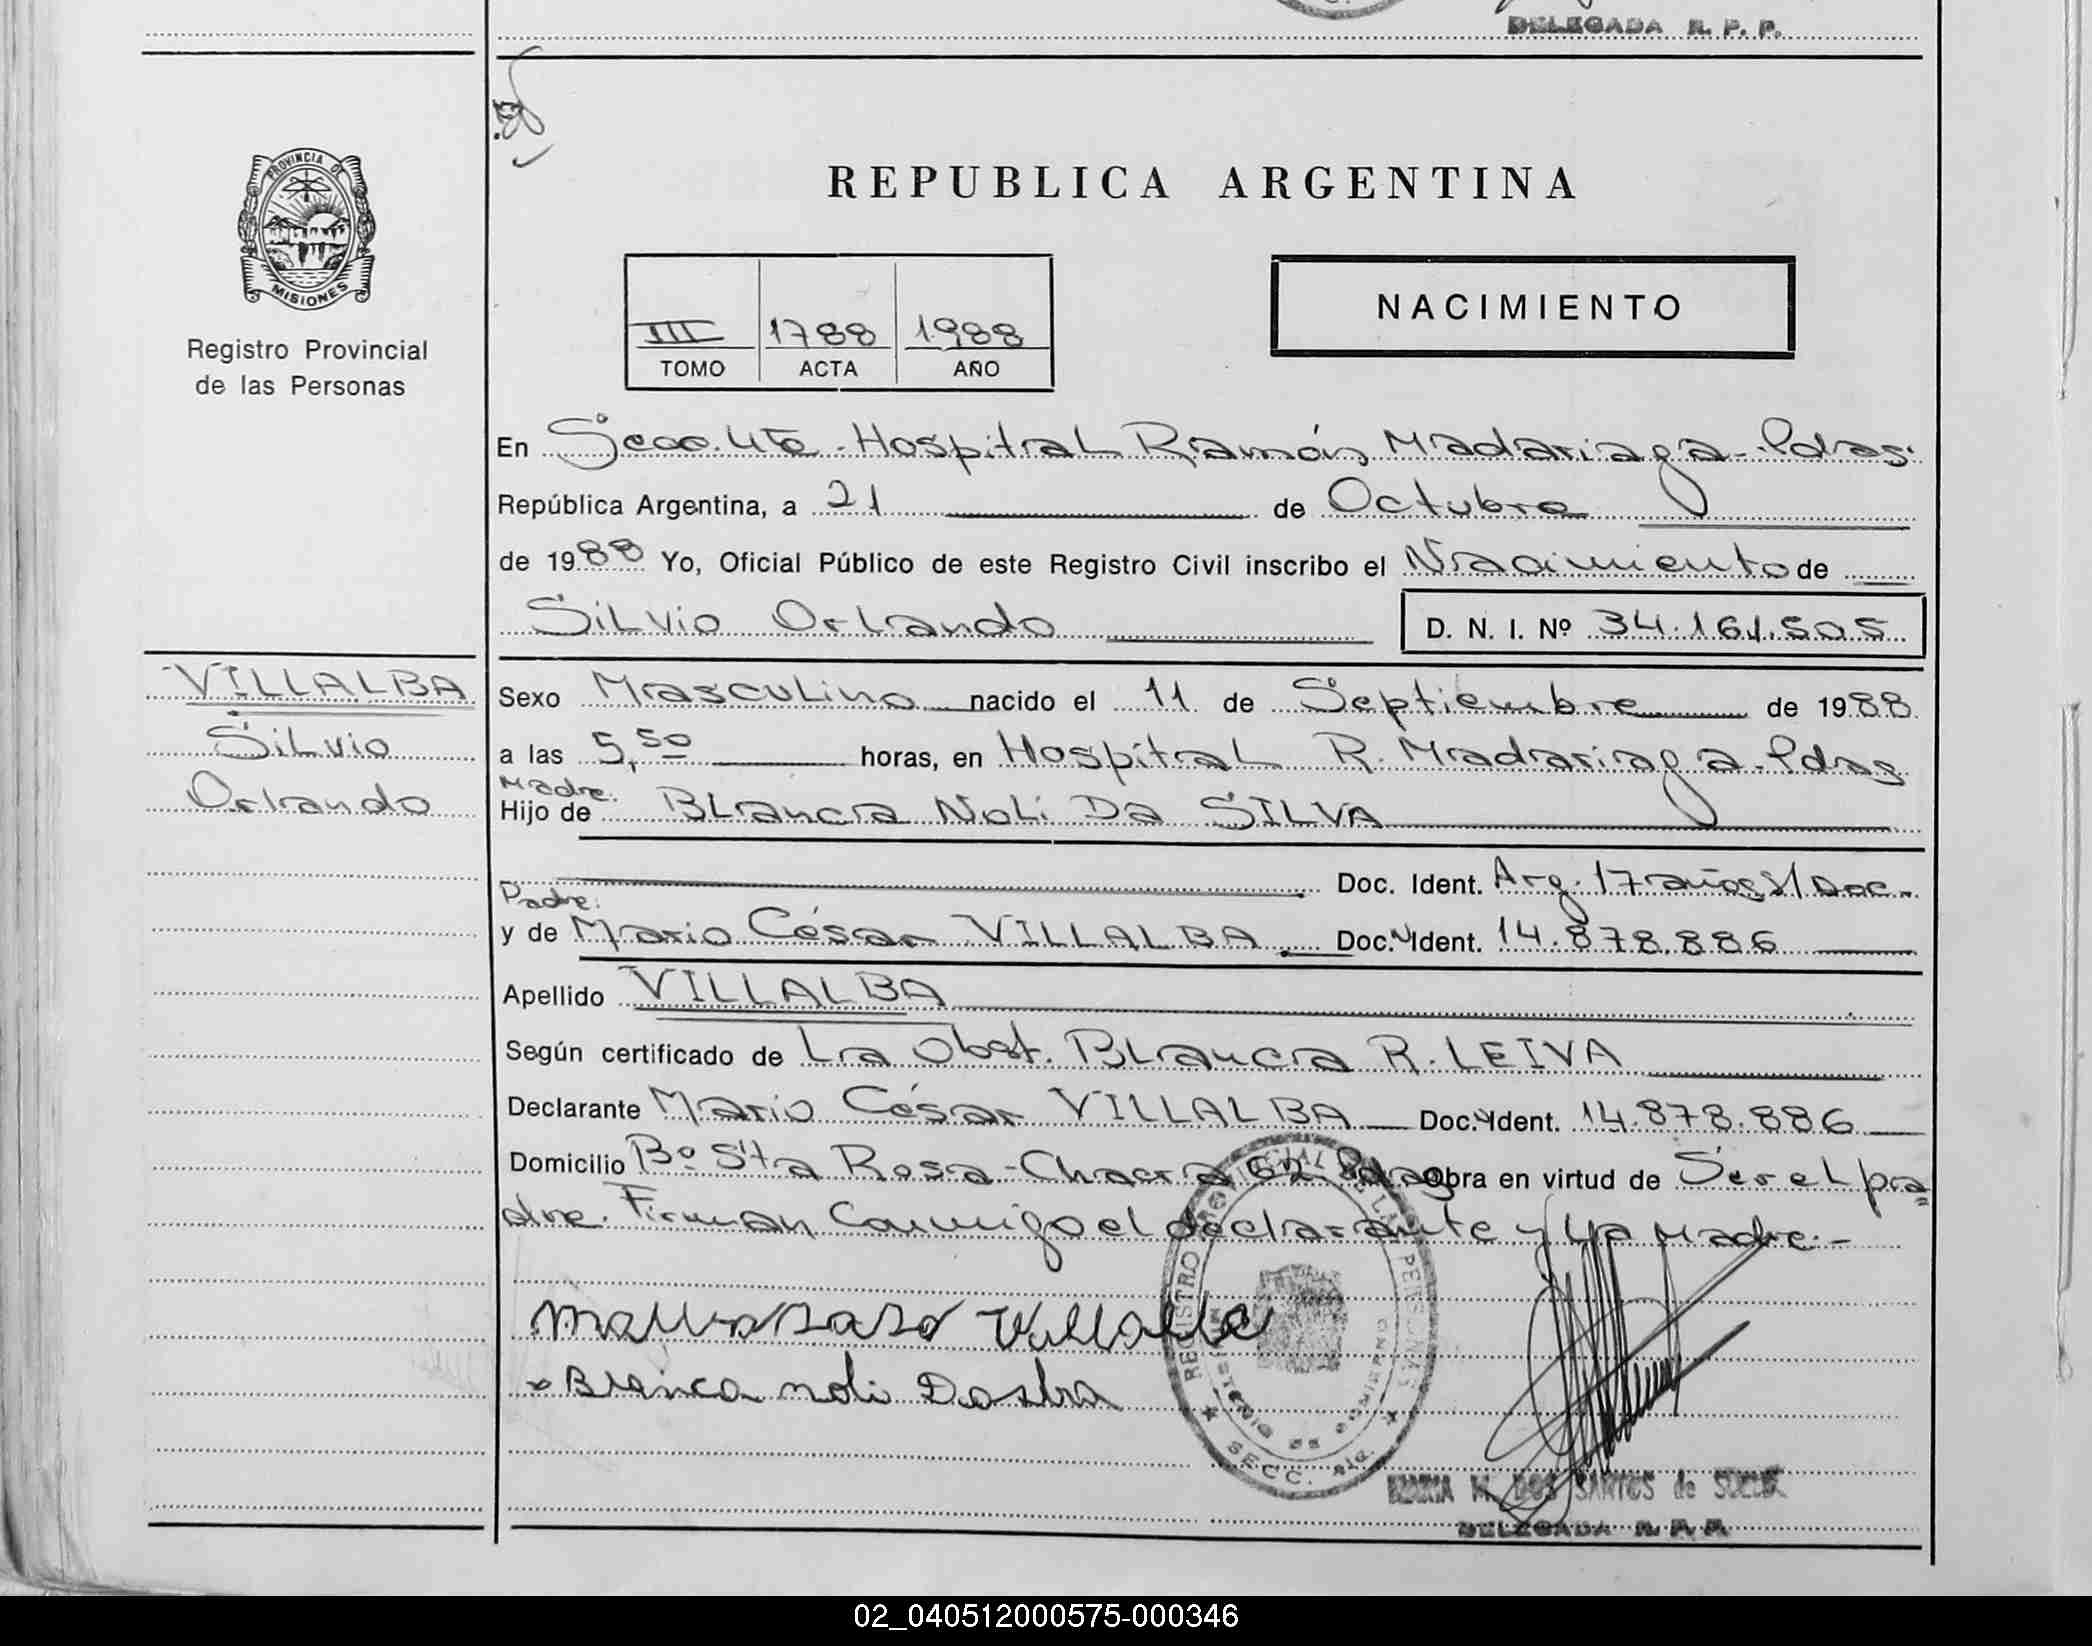 DELEGADA R. P. P.
PROVINCIA DE
MISIONES
Registro Provincial
de las Personas
REPUBLICA ARGENTINA
III 1788 1988
TOMO ACTA AÑO
NACIMIENTO
En Secc. 4ta. Hospital Ramón Madariaga - Pdas.
República Argentina, a 21 de Octubre
de 1988 Yo, Oficial Público de este Registro Civil inscribo el Nacimiento de
Silvio Orlando D. N. I. Nº 34.161.505
VILLALBA
Silvio
Orlando
Sexo Masculino nacido el 11 de Septiembre de 1988
a las 5,50 horas, en Hospital R. Madariaga - Pdas
Madre:
Hijo de Blanca Noli Da SILVA
Doc. Ident. Arg. 17 años S/Doc.
Padre:
y de Mario César VILLALBA Doc. Ident. 14.878.886
Apellido VILLALBA
Según certificado de La Obst. Blanca R. LEIVA
Declarante Mario César VILLALBA Doc. Ident. 14.878.886
Domicilio Bº Sta Rosa - Chacra 62 Pdas Obra en virtud de Ser el pa=
dre. Firman Conmigo el declarante y la Madre.-
Villalba
Blanca noli Dasilva
REGISTRO PROVINCIAL DE LAS PERSONAS
MINISTERIO DE GOBIERNO
SECC. 4ta.
MARIA M. DOS SANTOS de
DELEGADA R. P. P.
02_040512000575-000346